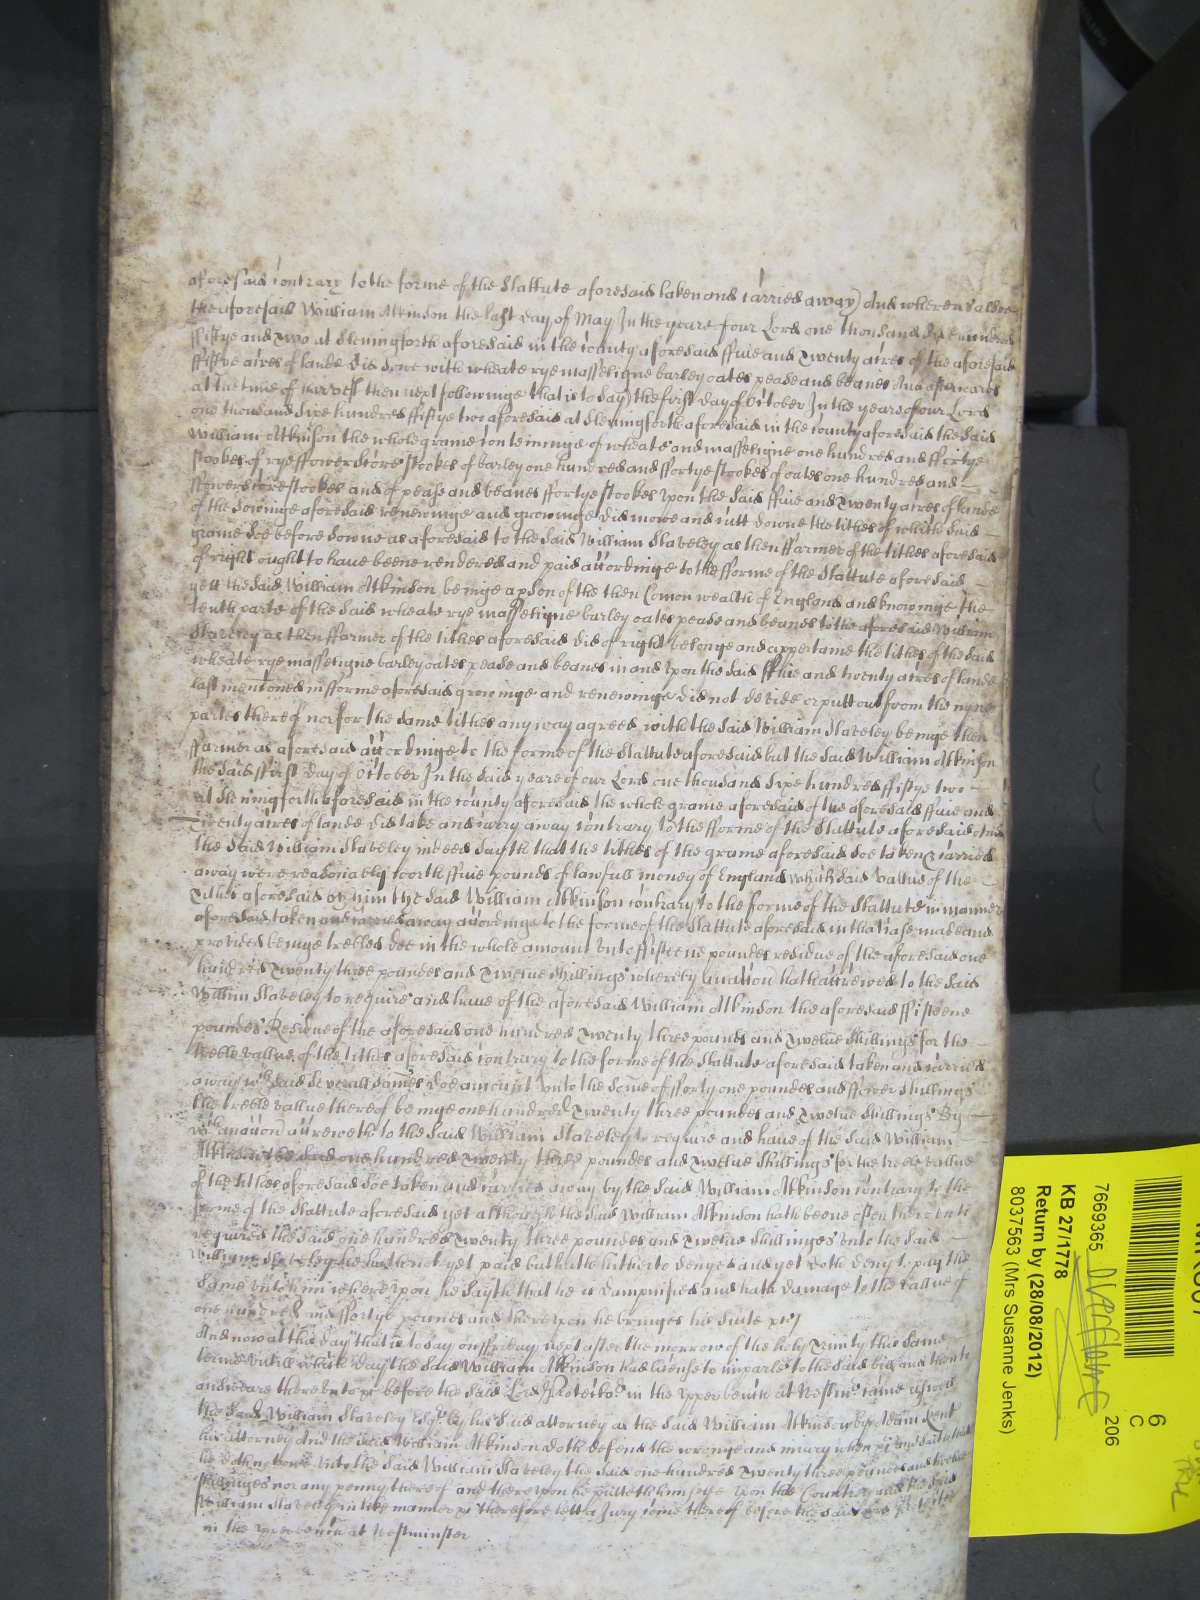 aforesaid contrary to the forme of the Stattute aforesaid taken and carried away) And whereas alsoe
the aforesaid William Atkinson the last day of May In the yeare of our Lord one thousand sixe hundred
ffiftye and Two at Sleningforth aforesaid in the county aforesaid ffiue and Twenty acres of the aforesaid
ffiftye acres of lande did sowe with wheate rye masseligne barley oates pease and beanes And afterwards
at the time of harvest then next followinge that is to say) the first day of October In the yeare of our Lord
one thousand sixe hundred ffiftye two aforesaid at Sleningforth aforesaid in the county aforesaid the said
William Atkinson the whole graine conteininge of wheate and masseligne one hundred and ffortye
stookes of rye ffowerscore stookes of barley one hundred and ffortye stookes of oates one hundred and
ffowerscore stookes and of pease and beanes ffortye stookes vpon the said ffiue and Twenty acres of lande
of the sowinge aforesaid renewinge and growinge did mowe and cutt downe the tithes of which said
graine soe before sowne as aforesaid to the said William Slaveley as then ffarmer of the tithes aforesaid
of right ought to have beene rendered and paid accordinge to the fforme of the Stattute aforesaid
yett the said William Atkinson beinge a pson of the then Comon wealth of England and knowinge the
tenth parte of the said wheate rye masseligne barley oates pease and beanes to the aforesaid William
Slaveley as then ffarmer of the tithes aforesaid did of right belonge and appertaine the tithes of the said
wheate rye masseligne barley oates pease and beanes in and vpon the said ffiue and twenty acres of lande
last mentoned in fforme aforesaid growinge and renewinge did not devide or putt out from the nyne
partes thereof nor for the same tithes any way agreed with the said William Slaveley beinge then
ffarmer as aforesaid accordinge to the forme of the Stattute aforesaid but the said William Atkinson
the said ffirst day of October In the said yeare of our Lord one thousand sixe hundred ffiftye two
at Sleningforth aforesaid in the county aforesaid the whole graine aforesaid of the aforesaid ffiue and
Twenty acres of lande did take and carry away contrary to the fforme of the Stattute aforesaid And
the said William Slaveley indeed sayth that the tithes of the graine aforesaid soe taken & carried
away were reasonably worth ffiue pounds of lawfull money of England which said vallue of the
Tithes aforesaid by him the said William Atkinson contrary to the forme of the Stattute in manner
aforesaid taken and carried away accordinge to the forme of the Stattute aforesaid in that case made and
provided beinge trebled doe in the whole amount vnto ffifteene poundes residue of the aforesaid one
hundred Twenty three poundes and Twelue shillings whereby an action hath accrewed to the said
William Slaveley to require and haue of the aforesaid William Atkinson the aforesaid ffifteene
poundes Residue of the aforesaid one hundred Twenty three pounds and Twelue shillings for the
treble vallue of the tithes aforesaid contrary to the forme of the Stattute aforesaid taken and carried
away wch said severall somes doe amount vnto the some of fforty one poundes and ffower shillings
the treble vallue thereof beinge one hundred Twenty three poundes and Twelue shillings By
wch an action accreweth to the said William Slaveley to require and haue of the said William
Atkinson the said one hundred Twenty three poundes and Twelue shillings for the treble vallue
of the tithes aforesaid soe taken and carried away by the said William Atkinson contrary to the
forme of the Stattute aforesaid yet although the said William Atkinson hath beene often therevnto
required the said one hundred Twenty three poundes and Twelue shillinges vnto the said
William Slaveley he hath not yet paid but hath hitherto denyed and yet doth deny to pay the
same vnto him wherevpon he sayth that he is dampnified and hath damage to the vallue of
one hundred and ffortye pounds and therevpon he bringes his suite &c
And now at this day that is to say on ffriday next after the morrow of the holy Trinity this same
terme vntill which day the said William Atkinson had license to imparle to the said bill and then to
answeare therevnto &c before the said Lord Protector in the vpper bench at Westmr came aswell
the said William Slaveley Esqr by his said attorney as the said William Atkinson by Adam
his attorney And the said William Atkinson doth defend the wronge and iniury when &c and saith that
he doth not owe vnto the said William Slaveley the said one hundred Twenty three poundes and twelue
shillinges nor any penny thereof and therevpon he putteth himselfe vpon the Country and the said
William Slaveley in like manner &c Therefore lett a Jury come thereof before the said Lord Protector
in the vpper bench at Westminster
7669365
206
KB 27/1778
Return by (28/08/2012)
8037563 (Mrs Susanne Jenks)
6
C